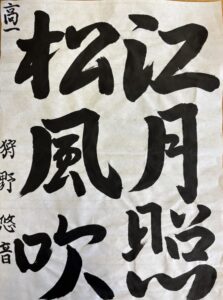 江月照
松風吹
高一 狩野悠音